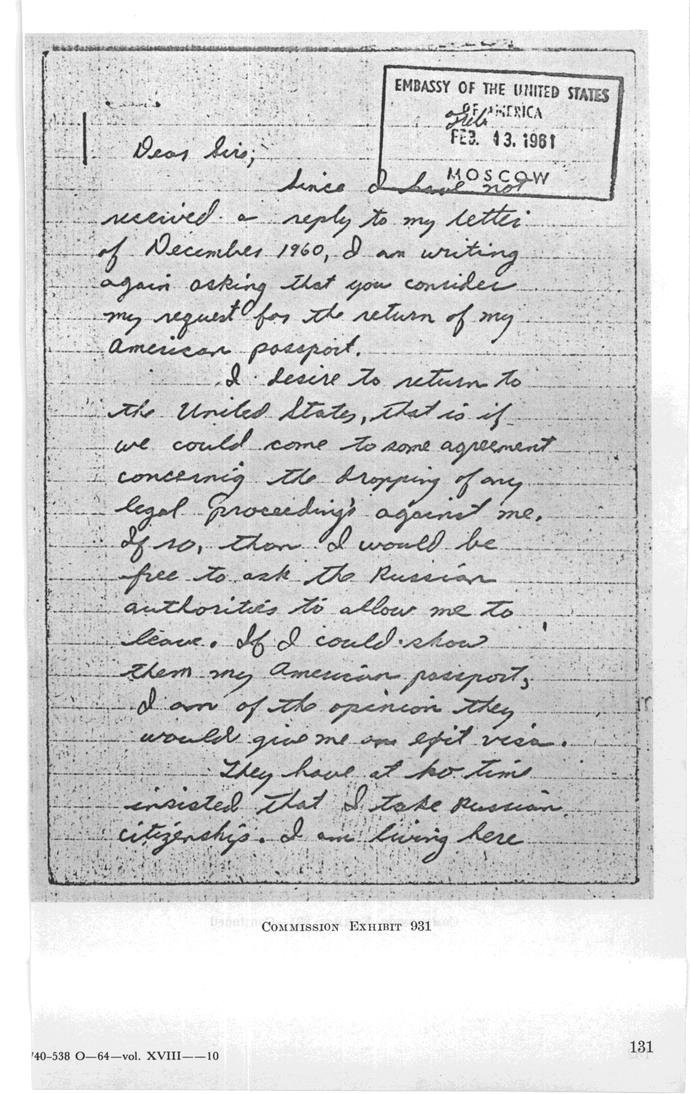 EMBASSY OF THE UNITED STATES
OF AMERICA
FEB. 13. 1961
MOSCOW
Dear Sirs;
Since I have not
received a reply to my letter
of December 1960, I am writing
again asking that you consider
my request for the return of my
American passport.
I desire to return to
the United States, that is if
we could come to some agreement
concernig the dropping of any
legal proceedings against me.
If so, than I would be
free to ask the Russian
authorities to allow me to
leave. If I could show
them my American passport,
I am of the opinion they
would give me an exit visa.
They have at no time
insisted that I take Russian
citizenship. I am living here
COMMISSION EXHIBIT 931
740-538 O—64—vol. XVIII——10
131